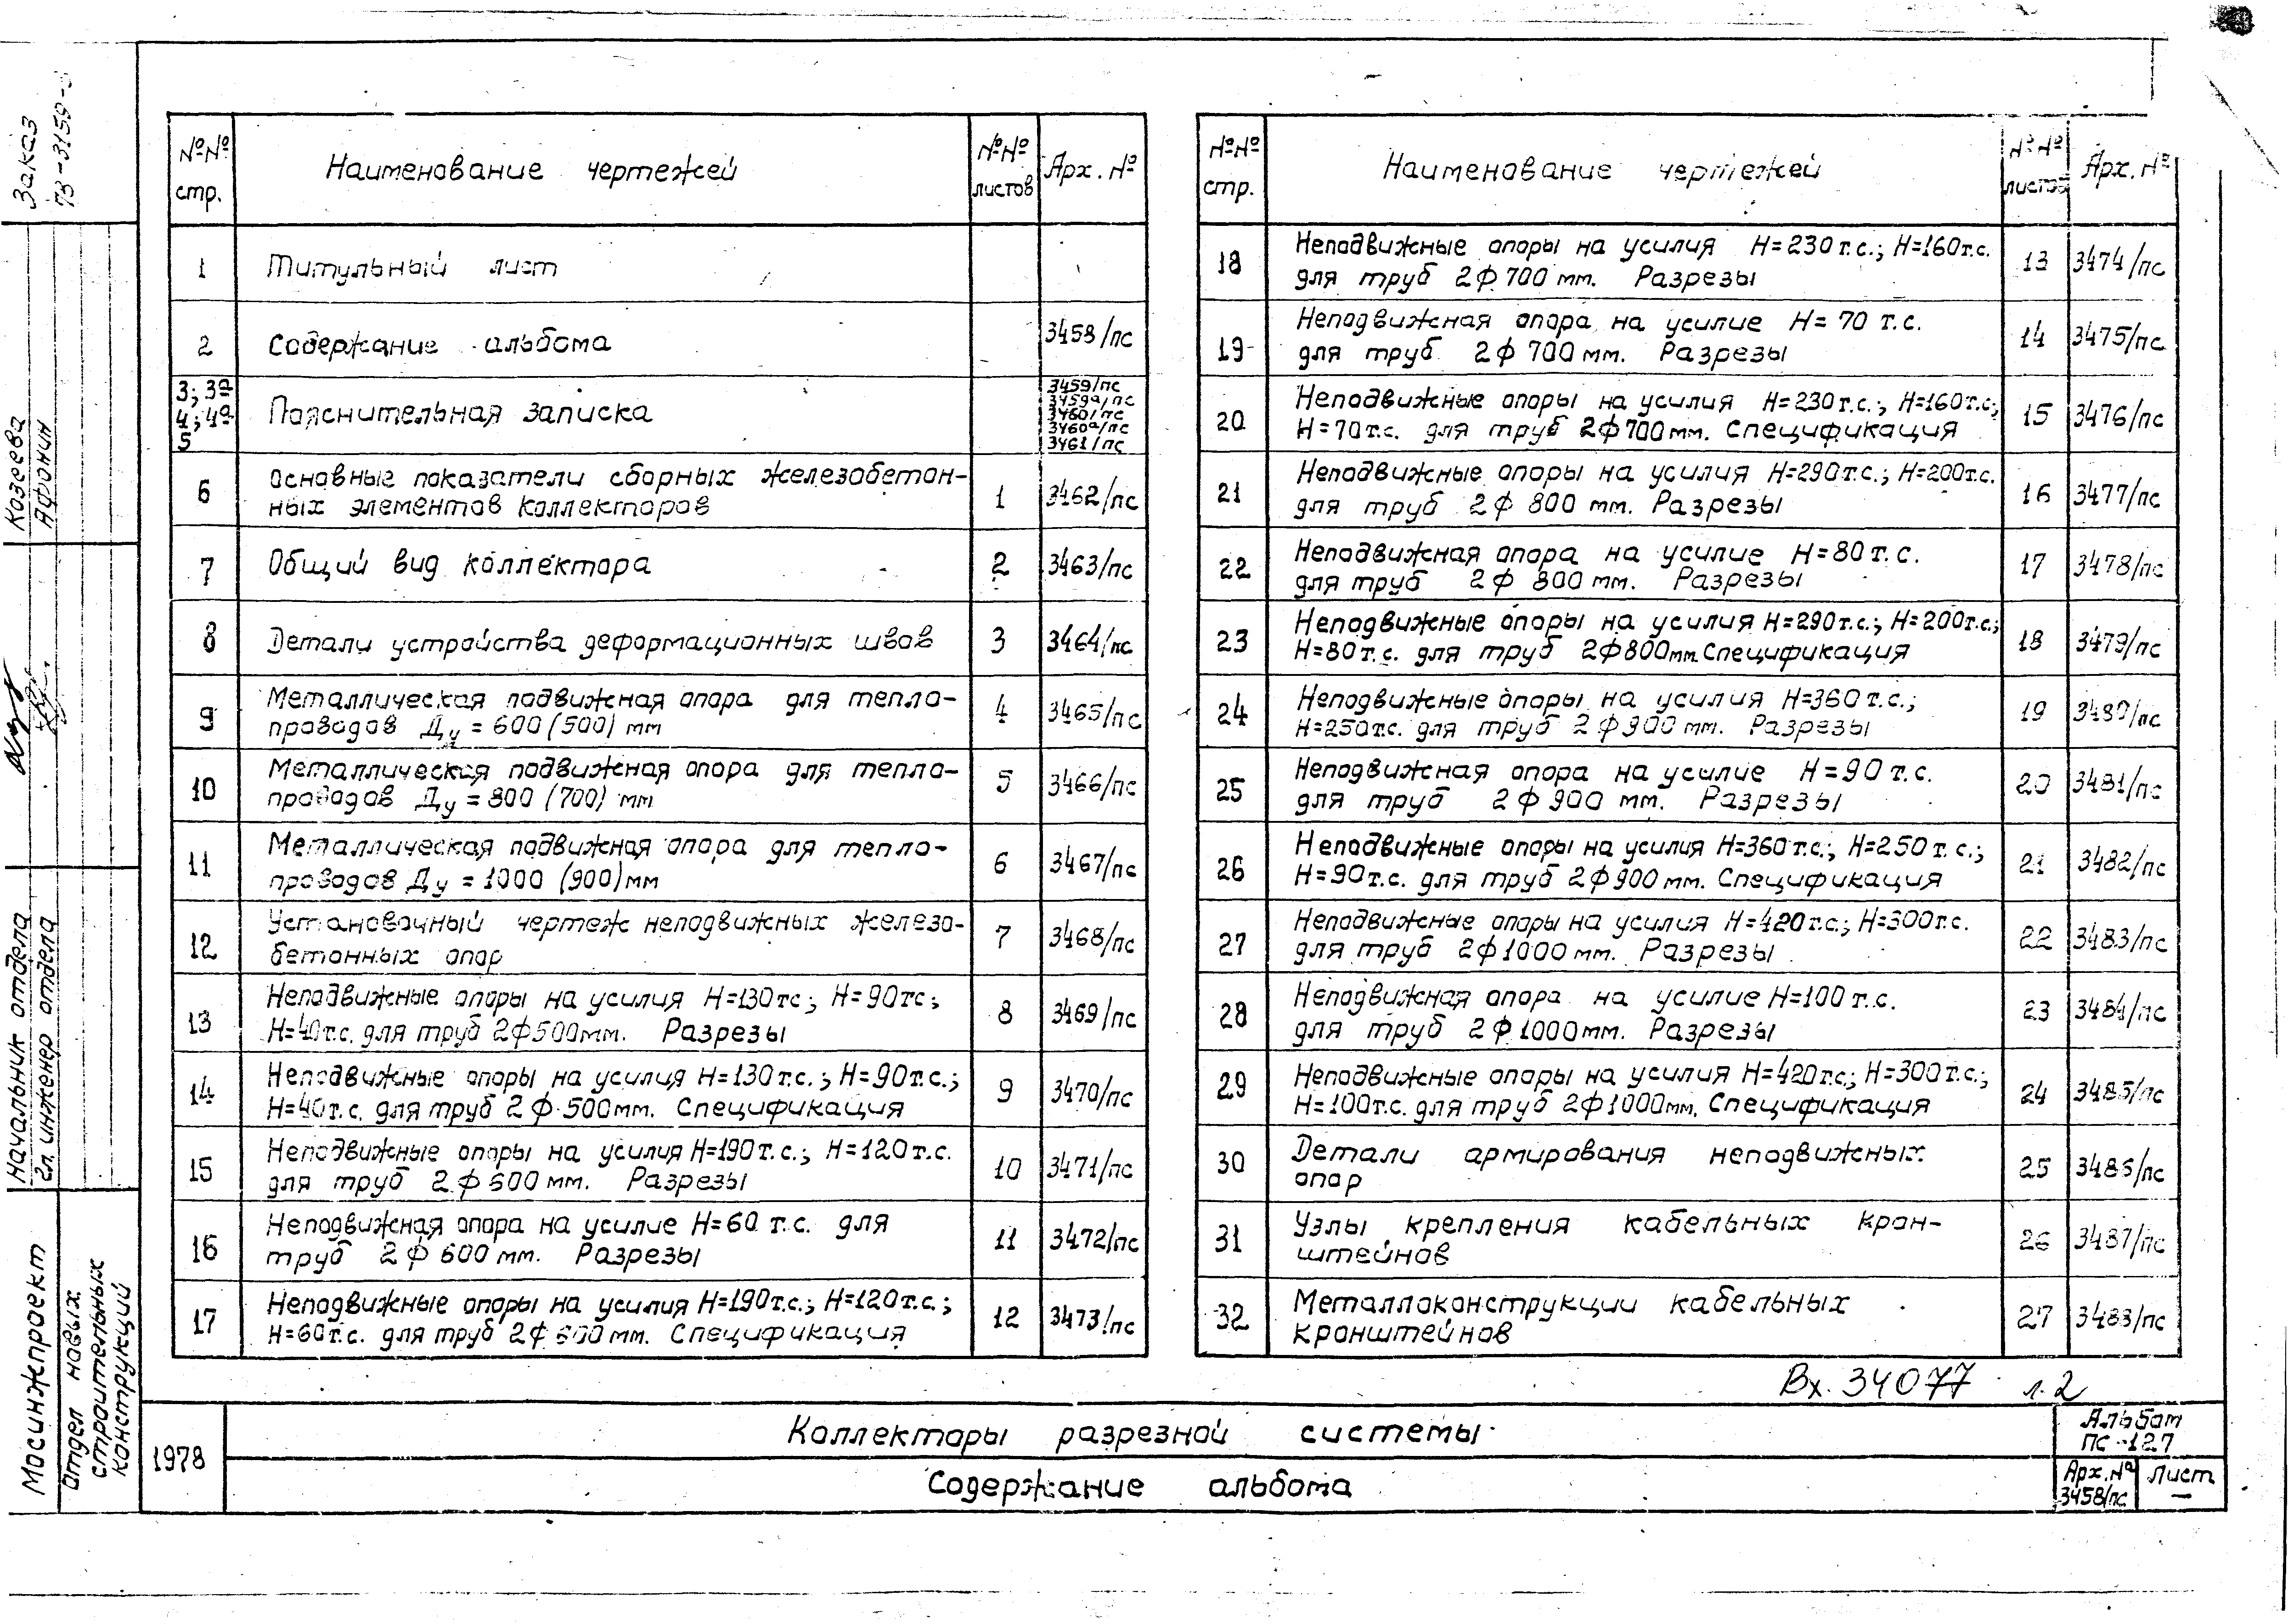 №№ стр. Наименование чертежей №№ листов Арх. №
1 Титульный лист
2 Содержание альбома 3458/пс
3; 3а 4; 4а 5 Пояснительная записка 3459/пс 3459а/пс 3460/пс 3460а/пс 3461/пс
6 Основные показатели сборных железобетон-
ных элементов коллекторов 1 3462/пс
7 Общий вид коллектора 2 3463/пс
8 Детали устройства деформационных швов 3 3464/пс
9 Металлическая подвижная опора для тепло-
проводов Ду = 600 (500) мм 4 3465/пс
10 Металлическая подвижная опора для тепло-
проводов Ду = 800 (700) мм 5 3466/пс
11 Металлическая подвижная опора для тепло-
проводов Ду = 1000 (900) мм 6 3467/пс
12 Установочный чертеж неподвижных железо-
бетонных опор 7 3468/пс
13 Неподвижные опоры на усилия Н=130тс; Н=90тс;
Н=40т.с. для труб 2ф500мм. Разрезы 8 3469/пс
14 Неподвижные опоры на усилия Н=130т.с.; Н=90т.с.;
Н=40т.с. для труб 2ф500мм. Спецификация 9 3470/пс
15 Неподвижные опоры на усилия Н=190т.с.; Н=120т.с.
для труб 2ф600мм. Разрезы 10 3471/пс
16 Неподвижная опора на усилие Н=60 т.с. для
труб 2ф 600 мм. Разрезы 11 3472/пс
17 Неподвижные опоры на усилия Н=190т.с.; Н=120т.с.;
Н=60т.с. для труб 2ф600мм. Спецификация 12 3473/пс
№№ стр. Наименование чертежей №№ листов Арх. №
18 Неподвижные опоры на усилия Н=230т.с.; Н=160т.с.
для труб 2ф700мм. Разрезы 13 3474/пс
19 Неподвижная опора на усилие Н=70 т.с.
для труб 2ф700мм. Разрезы 14 3475/пс
20 Неподвижные опоры на усилия Н=230т.с.; Н=160т.с;
Н=70т.с. для труб 2ф700мм. Спецификация 15 3476/пс
21 Неподвижные опоры на усилия Н=290т.с.; Н=200т.с.
для труб 2ф 800 мм. Разрезы 16 3477/пс
22 Неподвижная опора на усилие Н=80т.с.
для труб 2ф 800мм. Разрезы 17 3478/пс
23 Неподвижные опоры на усилия Н=290т.с.; Н=200т.с.;
Н=80т.с. для труб 2ф800мм. Спецификация 18 3479/пс
24 Неподвижные опоры на усилия Н=360т.с.;
Н=250т.с. для труб 2ф900мм. Разрезы 19 3480/пс
25 Неподвижная опора на усилие Н=90т.с.
для труб 2ф 900 мм. Разрезы 20 3481/пс
26 Неподвижные опоры на усилия Н=360т.с.; Н=250т.с.;
Н=90т.с. для труб 2ф900мм. Спецификация 21 3482/пс
27 Неподвижные опоры на усилия Н=420т.с.; Н=300т.с.
для труб 2ф1000мм. Разрезы 22 3483/пс
28 Неподвижная опора на усилие Н=100т.с.
для труб 2ф1000мм. Разрезы 23 3484/пс
29 Неподвижные опоры на усилия Н=420т.с.; Н=300т.с.;
Н=100т.с. для труб 2ф1000мм. Спецификация 24 3485/пс
30 Детали армирования неподвижных
опор 25 3486/пс
31 Узлы крепления кабельных крон-
штейнов 26 3487/пс
32 Металлоконструкции кабельных
кронштейнов 27 3488/пс
Вх. 34077 л. 2
1978
Коллекторы разрезной системы
Содержание альбома
Альбом
ПС-127
Арх. №
3458/пс
Лист
—
Заказ
73-3159-
Козеева
Афонин
Начальник отдела
Гл. инженер отдела
Мосинжпроект
Отдел новых
строительных
конструкций